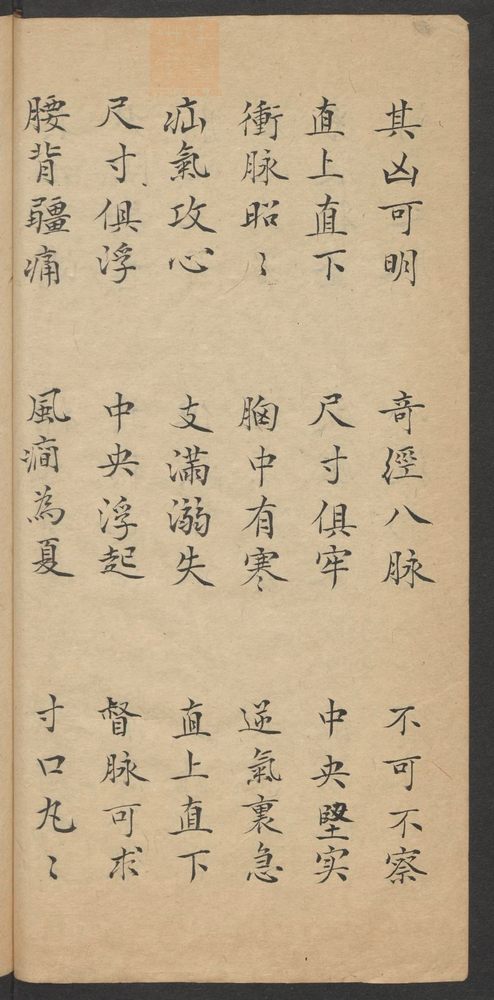 其凶可明　奇經八脉　不可不察
直上直下　尺寸俱牢　中央堅实
衝脉昭〻　胸中有寒　逆氣裏急
疝氣攻心　支滿溺失　直上直下
尺寸俱浮　中央浮起　督脉可求
腰背疆痛　風癎為夏　寸口丸〻